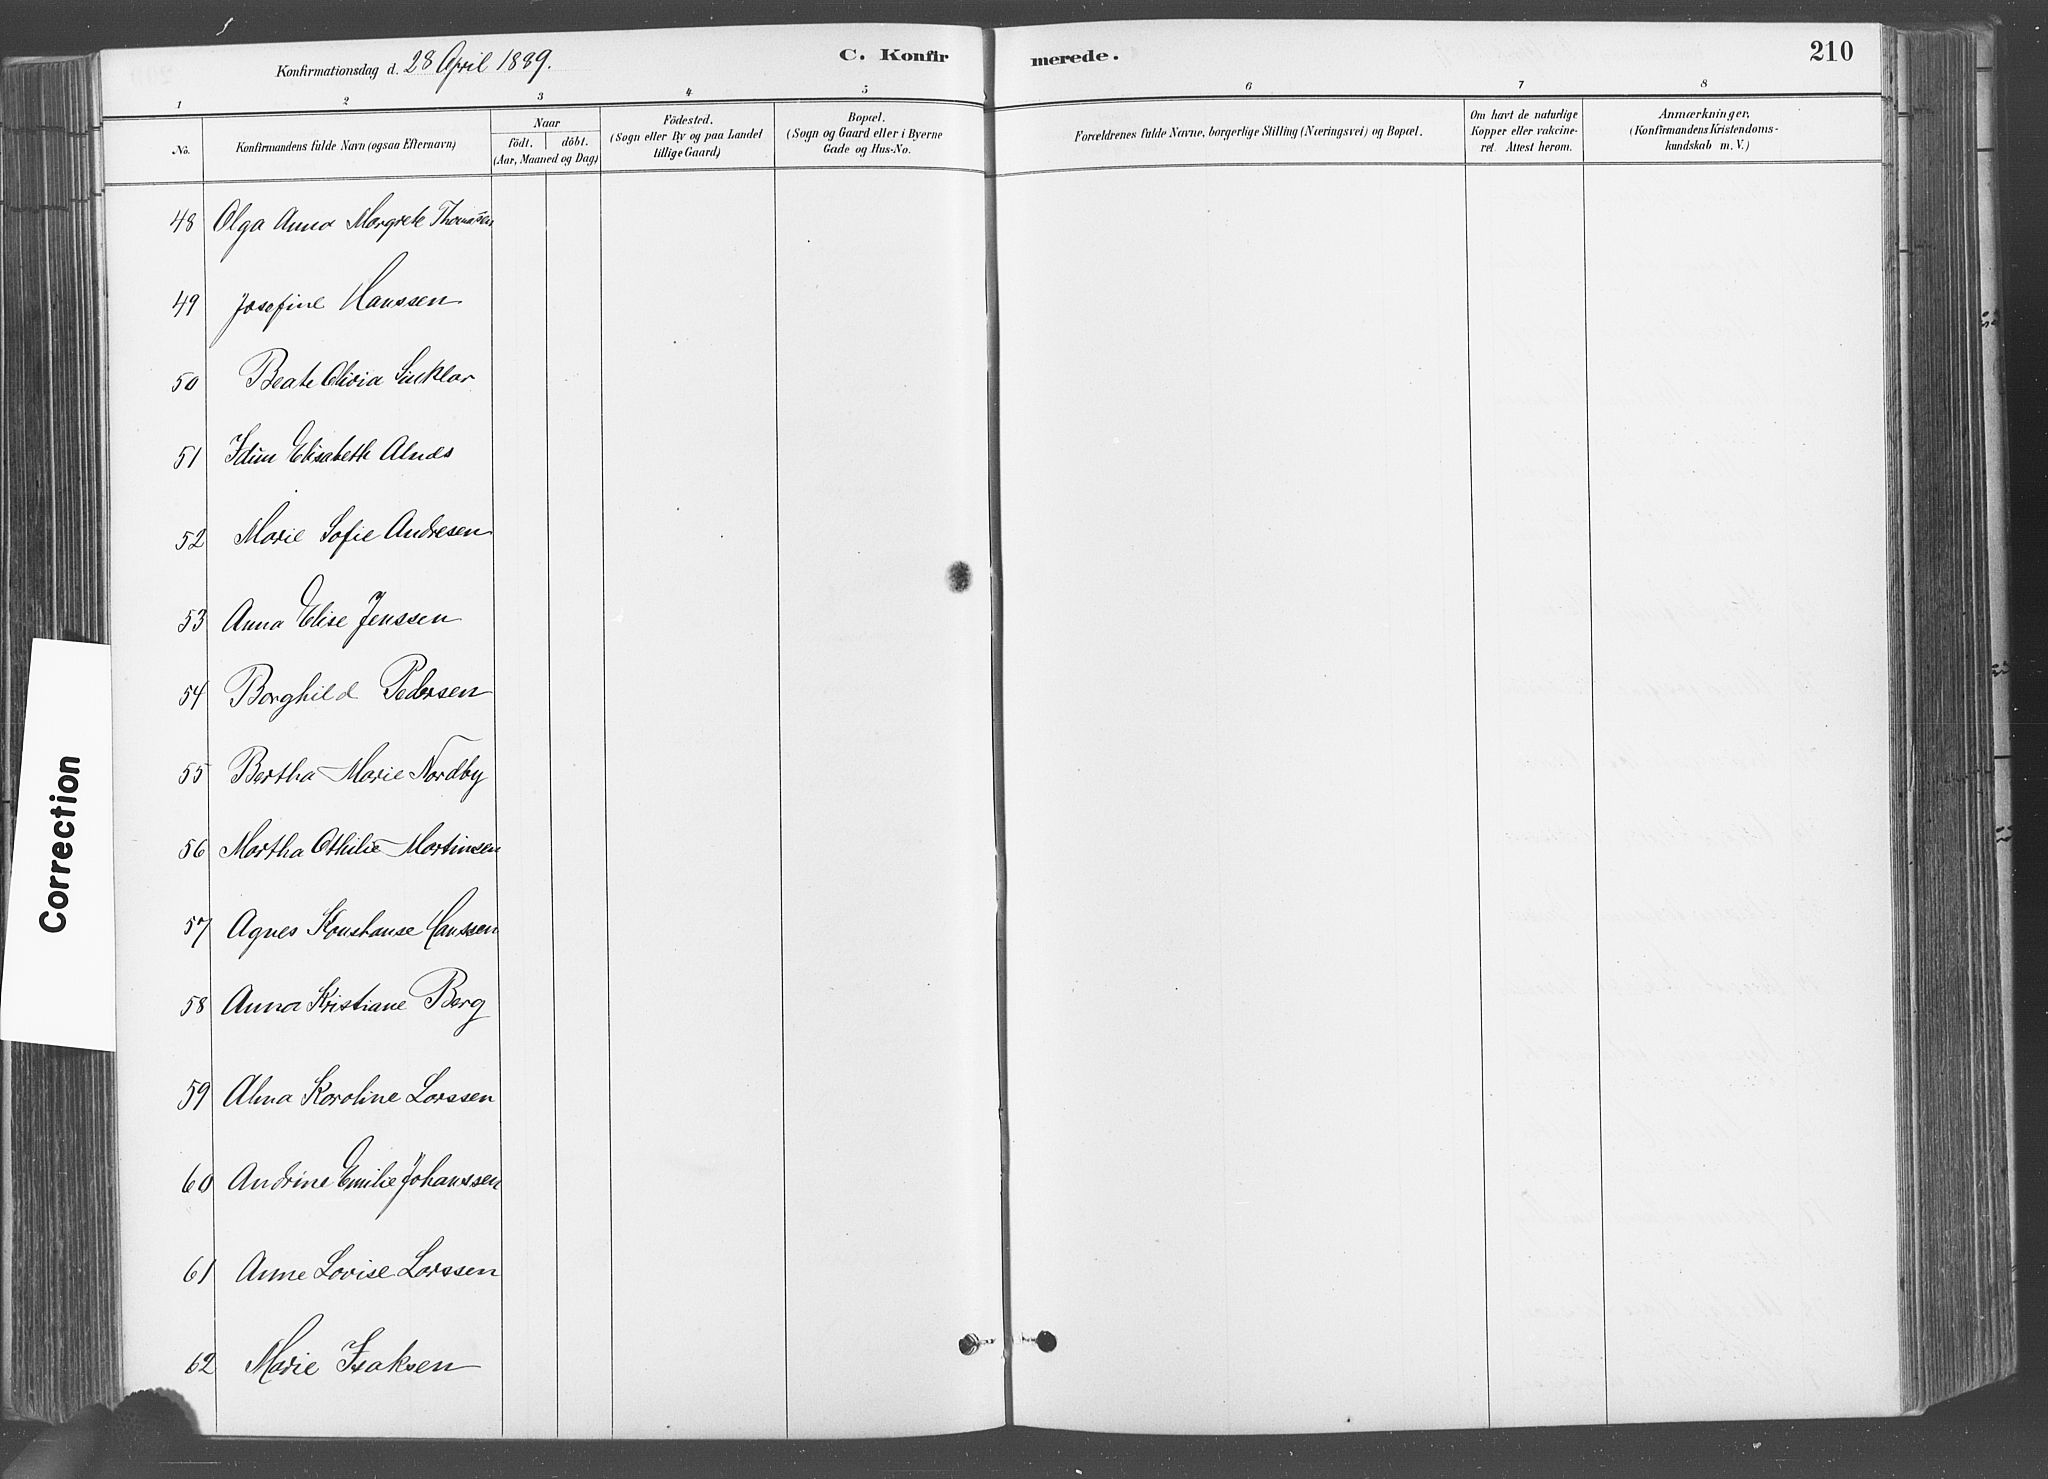 Konfirmationsdag d. 28 April 1889.
C. Konfirmerede.
210
1 2 3 4 5 6 7 8
No.
Konfirmandens fulde Navn (ogsaa Efternavn)
Naar
födt. döbt.
(Aar, Maaned og Dag)
Födested.
(Sogn eller By og paa Landet
tillige Gaard)
Bopæl.
(Sogn og Gaard eller i Byerne
Gade og Hus-No.
Forældrenes fulde Navne, borgerlige Stilling (Næringsvei) og Bopæl.
Om havt de naturlige
Kopper eller vakcine-
ret. Attest herom.
Anmærkninger,
(Konfirmandens Kristendoms-
kundskab m. V.)
48 Olga Anna Margrete Thomassen
49 Josefine Hanssen
50 Beate Olivia Sinklar
51 Idun Elisabeth Alnæs
52 Marie Sofie Andresen
53 Anna Elise Jenssen
54 Borghild Pedersen
55 Bertha Marie Nordby
56 Martha Othilie Martinsen
57 Agnes Konstanse Hanssen
58 Anna Kristiane Berg
59 Alma Karoline Larssen
60 Andrine Emilie Johanssen
61 Anne Lovise Larssen
62 Marie Isaksen
Correction